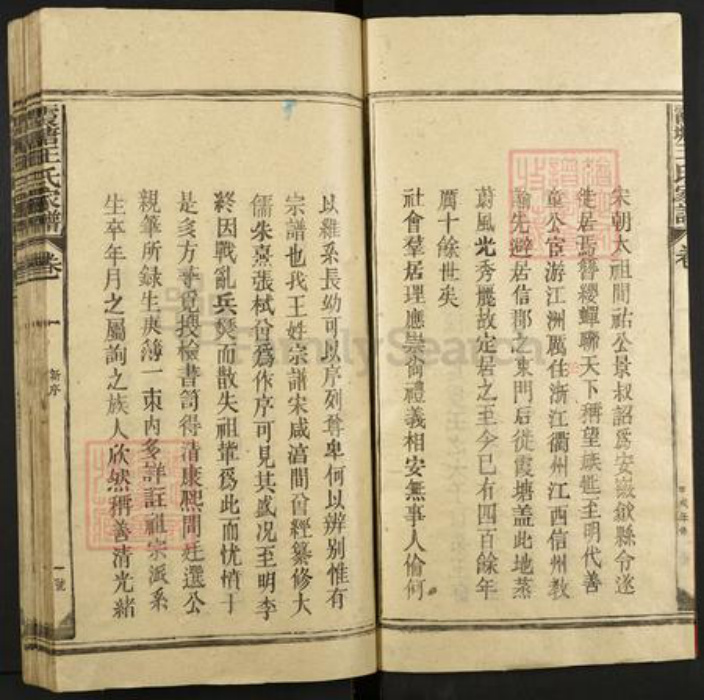 宋朝太祖間祐公景叔詔爲安徽歙縣令遂
徙居焉簪纓蟬聯天下稱望族世至明代善
童公宦游江洲厲住浙江衢州江西信州教
諭先避居信郡之東門后徙霞塘盖此地蒸
蔚風光秀麗故定居之至今已有四百餘年
厲十餘世矣
社會羣居理應崇尙禮義相安無事人倫何
以維系長幼可以序列尊卑何以辨别惟有
宗譜也我王姓宗譜宋咸淳間曾經纂修大
儒朱熹張栻曾爲作序可見其盛况至明季
終因戰亂兵燹而散失祖輩爲此而忧憤十
是多方尋覓搜檢書笥得清康熙間廷選公
親筆所録生庚簿一束内多詳註祖宗派系
生卒年月之屬詢之族人欣然稱善清光緒
霞塘王氏家譜
卷一
新序
一號
FamilySearch